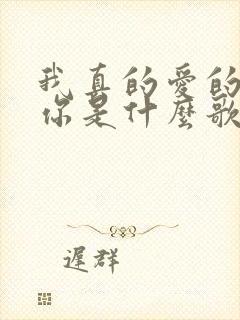 我真的愛的
你是什麼歌
遲群